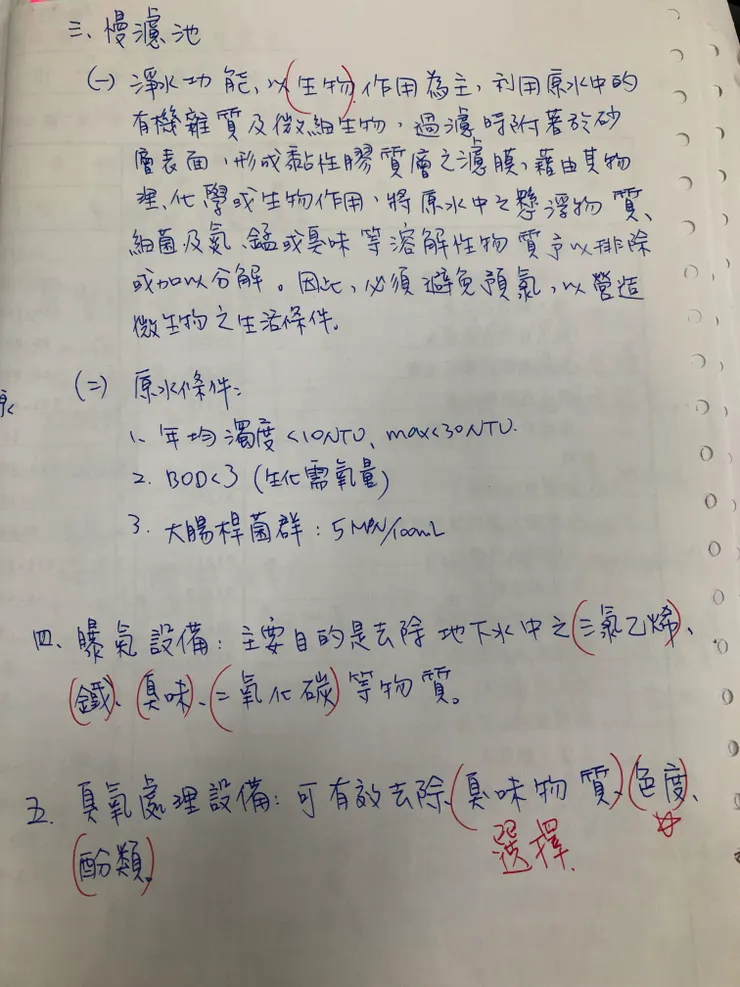 三、慢濾池
(一) 淨水功能,以(生物)作用為主,利用原水中的
有機雜質及微細生物,過濾時附著於砂
層表面,形成黏性膠質層之濾膜,藉由其物
理、化學或生物作用,將原水中之懸浮物質、
細菌及氨、錳或臭味等溶解性物質予以排除
或加以分解。因此,必須避免預氯,以營造
微生物之生活條件。
(二) 原水條件:
1. 年均濁度<10NTU、max<30NTU.
2. BOD<3 (生化需氧量)
3. 大腸桿菌群:5MPN/100mL
四、曝氣設備:主要目的是去除地下水中之(三氯乙烯)、
(鐵)、(臭味)、(二氧化碳)等物質。
五、臭氧處理設備:可有效去除(臭味物質)、(色度)、
選擇.
(酚類)。